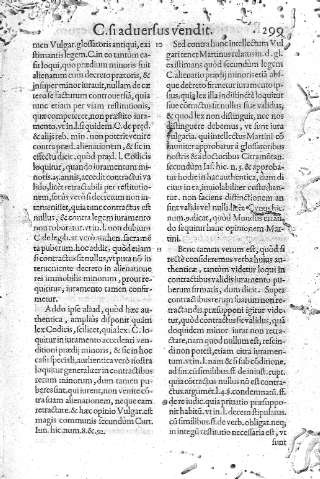 C. si aduersus vendit. 299
men Vulgar. glossatoris antiqui, exi
stimantis legem. C. an eo tantùm ca-
su loqui, quo prædium minoris fuit
alienatum cum decreto prætoris, &
insuper minor iurauit, nullam de cæ
tero se facturum controuersiã, quia
nunc etiam per viam restitutionis,
quæ competeret, non præstito iura-
mento, vt in l. si quidem C. de præd.
& alijs reb. min. non poterit venire
contra præd. alienationem, & sic in
effectu dicit, quòd præd. l. Codicis
loquitur, quando iuramentum mi-
noris accessit contractui va
lido, licèt retractabili per restitutio-
nem, secùs verò si decretum non in-
teruenisset, quia tunc contractus est
nullus, & contra legem iuramento
non roboratur, vt in l. non dubium
C. de legib. at verò authen. sacramẽ
ta puberum hoc addit, quòd etiam
si contractus sit nullus, vt puta nõ in
terueniente decreto in alienatione
rei immobilis minorum, prout re-
quiritur, iuramento tamen confir-
metur.
Addo ipse aliud, quòd hæc au-
thentica, ampliùs disponit quàm
lex Codicis, scilicet, quia lex. C. lo-
quitur in iuramento accedenti ven-
ditioni prædij minoris, & sic in hoc
casu speciali, authentica verò nostra
loquitur generaliter in contractibus
rerum minorum, dum tamen pu-
beres sint, qui iurent, non venire cõ-
tra suam alienationem, neque eam
retractare. & hæc opinio Vulgar. est
magis communis secundùm Curt.
Iun. hic. num. 8. & 52.
Sed contra hunc intellectum Vul
gari tenet Martinus relatus in d. gl.
existimans quòd secundùm legem
C. alienatio prædij minoris etiã abs-
que decreto firmetur iuramento ip-
sius, quia lex illa indistinctè loquitur
siue contractus sit nullus siue validus,
& quod lex non distinguit, nec nos
distinguere debemus, vt iura
vulgaria, qui intellectus Martini cõ
muniter approbatur à glossatoribus
nostris & à doctoribus Citramõtan.
secundùm Ias. hic. n. 5. & approba-
tur hodie in hac authentica, dum di
citur in ea, inuiolabiliter custodian-
tur. non faciens distinctionem an
sint validi vel nulli, licèt Corn. hic.
num. 9. dicat, quòd Mundus errãn-
do sequitur hanc opinionem Mar-
tini.
Benè tamen verum est, quòd si
rectè consideremus verba huius au-
thenticæ, tantùm videtur loqui in
contractibus validis iuramento pu-
berum firmatis, dum dicit. Super
contractibus rerum suarum non re-
tractandis, præsupponi igitur vide-
tur, quòd contractus sit validus, quã
doquidem minor iurat non retra-
ctare, nam quod nullum est, rescin-
di non potest, etiam citra iuramen-
tum. vt in l. nam & si sub cõditione,
ad fin. cũ similibus. ff. de iniust. rupt.
quia cõtractus nullus nõ est contra-
ctus. argumẽt. l. 4. §. condemnatũ. ff.
de re iudic. quia priuatio præsuppo-
nit habitũ. vt in l. decem stipulatus.
cũ similibus. ff. de verb. obligat. neq;
in integrũ restitutio necessaria est, vt
sunt